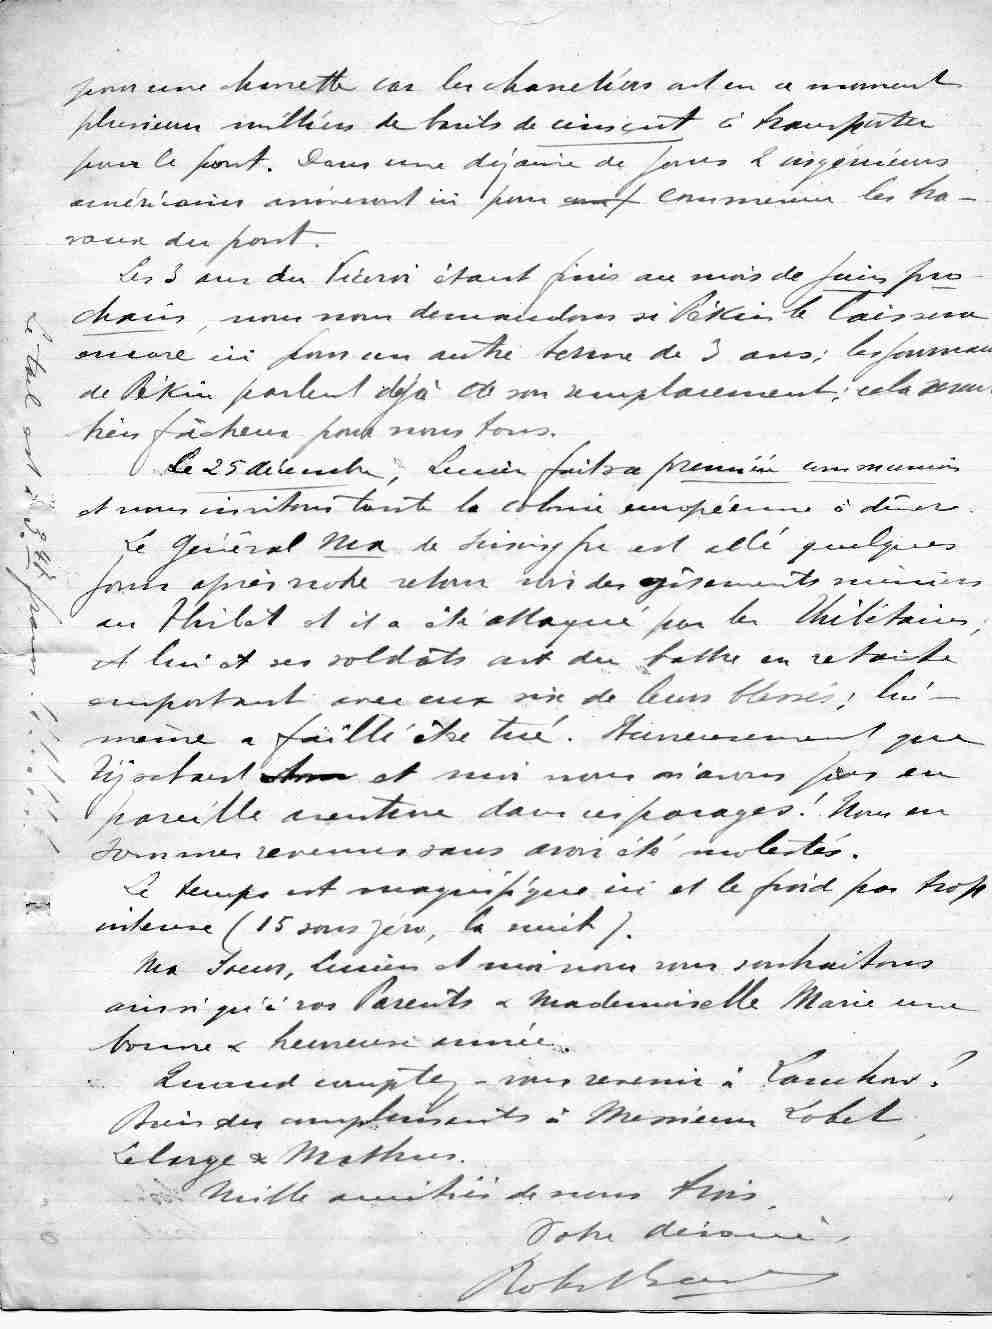 pour une charrette car les charretiers ont en ce moment
plusieurs milliers de barils de ciment à transporter
pour le pont. Dans une dizaine de jours 2 ingénieurs
américains arriveront ici pour commencer les tra-
vaux du pont.
Les 3 ans du Viceroi étant finis au mois de juin pro-
chain, nous nous demandons si Pékin le laissera
encore ici pour un autre terme de 3 ans; les journaux
de Pékin parlent déjà de son remplacement; cela serait
très fâcheux pour nous tous.
Le 25 décembre, Lucien fait sa première communion
et nous invitons toute la colonie européenne à dîner.
Le Général Ma de est allé quelques
jours après notre retour voir des gisements miniers
au Thibet et il a été attaqué par les Thibétains;
et lui et ses soldats ont du battre en retraite
emportant avec eux six de leurs blessés; lui-
même a failli être tué. Heureusement que
et moi nous n'avons pas eu
pareille aventure dans ces parages! Nous en
sommes revenus sans avoir été molestés.
Le temps est magnifique ici et le froid pas trop
intense (15 sous zéro, la nuit).
Ma Soeur, Lucien et moi nous vous souhaitons
ainsi qu'à vos Parents & Mademoiselle Marie une
bonne & heureuse année.
Quand comptez-vous revenir à Lanchow?
Bien des compliments à Messieurs
Lelarge & Mathieu.
Mille amitiés de nous trois
Votre dévoué,
Le tael est à